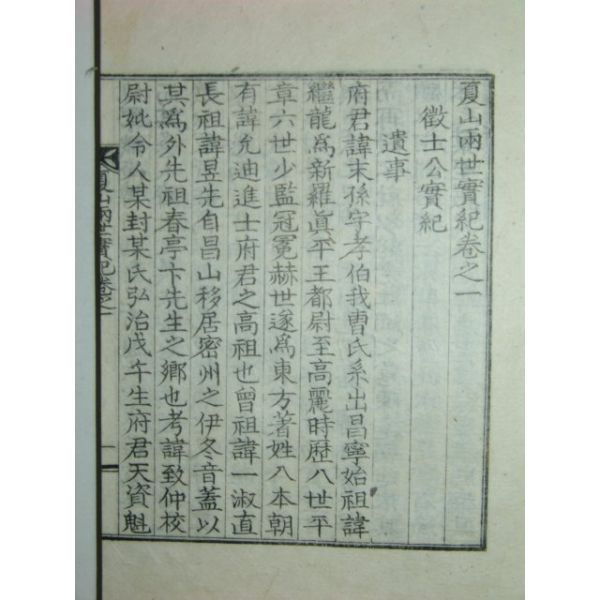 夏山兩世實紀卷之一
徵士公實紀
遺事
府君諱末孫字孝伯我曺氏系出昌寧始祖諱
繼龍爲新羅眞平王都尉至高麗時歷八世平
章六世少監冠冕赫世遂爲東方著姓入本朝
有諱允迪進士府君之高祖也曾祖諱一淑直
長祖諱昱先自昌山移居密州之伊冬音蓋以
其爲外先祖春亭卞先生之鄕也考諱致仲校
尉妣令人某封某氏弘治戊午生府君天資魁
夏山兩世實紀卷之一
一